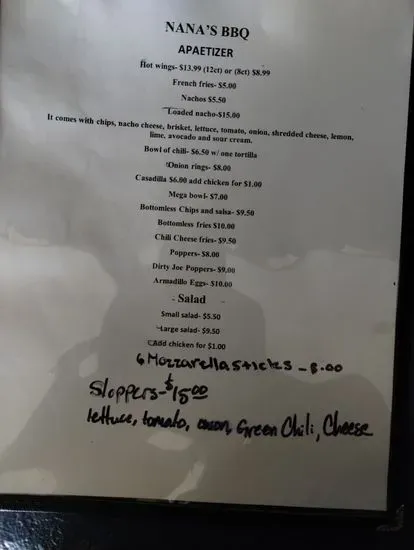 NANA'S BBQ
APAETIZER
Hot wings- $13.99 (12ct) or (8ct) $8.99
French fries- $5.00
Nachos $5.50
Loaded nacho-$15.00
It comes with chips, nacho cheese, brisket, lettuce, tomato, onion, shredded cheese, lemon,
lime, avocado and sour cream.
Bowl of chili- $6.50 w/ one tortilla
Onion rings- $8.00
Casadilla $6.00 add chicken for $1.00
Mega bowl- $7.00
Bottomless Chips and salsa- $9.50
Bottomless fries $10.00
Chili Cheese fries- $9.50
Poppers- $8.00
Dirty Joe Poppers- $9.00
Armadillo Eggs- $10.00
- Salad -
Small salad- $5.50
Large salad- $9.50
Add chicken for $1.00
6 Mozzarella sticks - 8.00
Sloppers- $15.00
lettuce, tomato, onion, Green Chili, Cheese